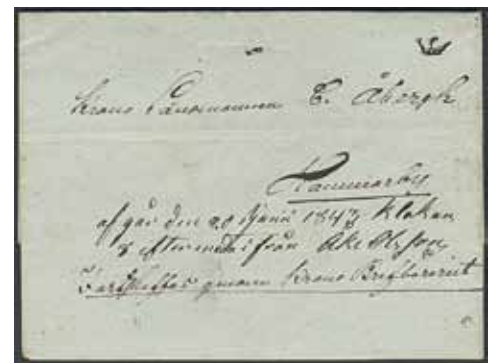 Krono Länsmannen E. Åbergh
Hammarby
af går den 20 Juni 1843 Klokan
8 eftermid: ifrån Åke Olsson
Fortskaffas genom Krono Brefbäreriet